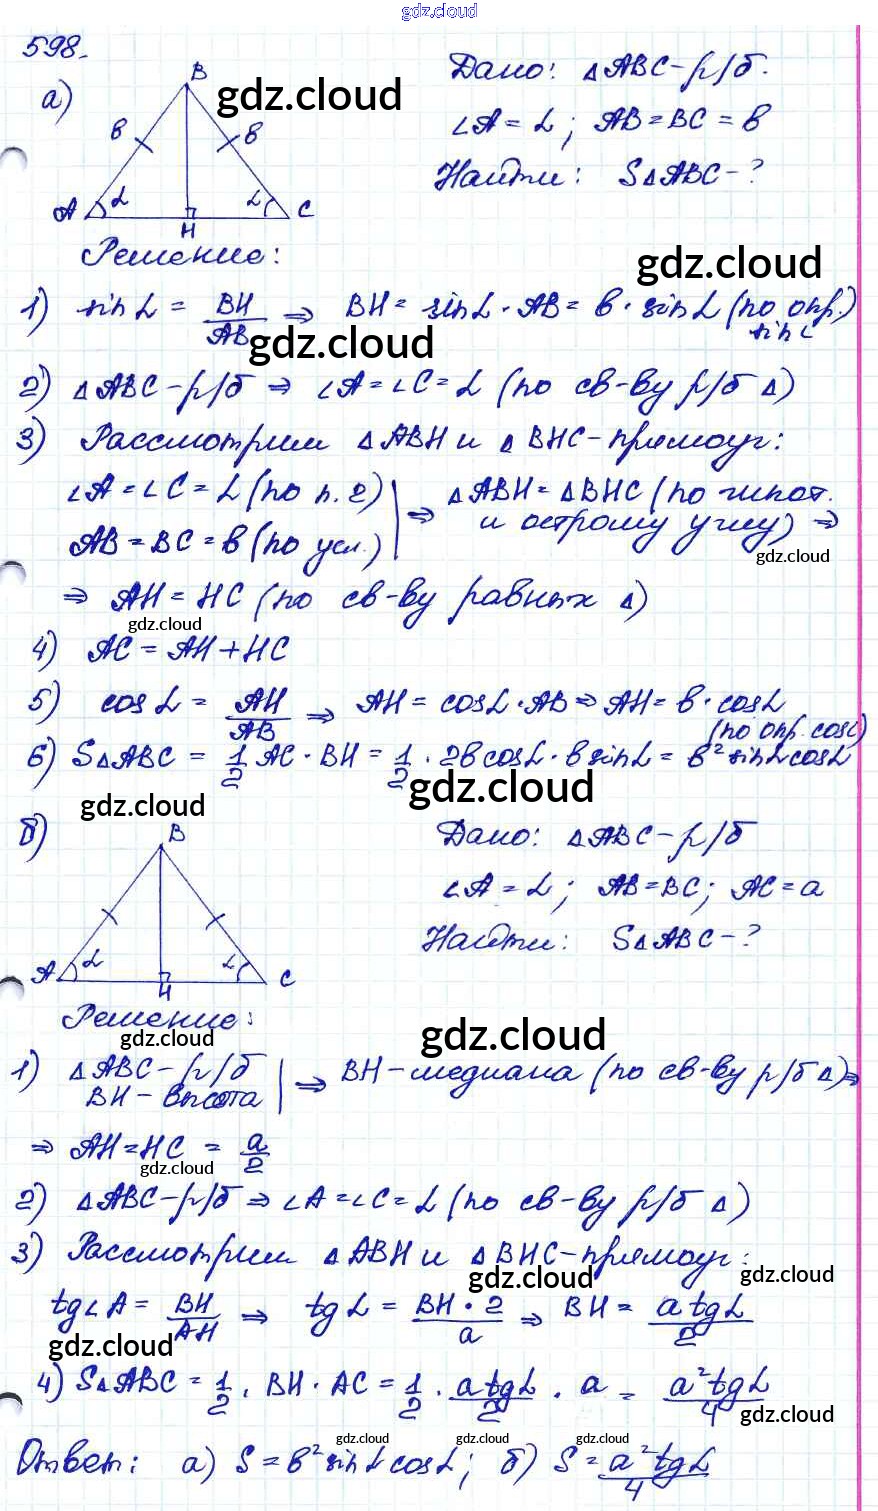 gdz.cloud
598.
а)
B
gdz.cloud
Дано: △ABC - р/б.
∠A = α ; AB = BC = b
Найти: S△ABC - ?
b
b
A
α
α
C
H
Решение:
gdz.cloud
1) sin α = BH/AB ⇒ BH = sin α · AB = b · sin α (по опр. sin α)
gdz.cloud
2) △ABC - р/б ⇒ ∠A = ∠C = α (по св-ву р/б △)
3) Рассмотрим △ABH и △BHC - прямоуг:
∠A = ∠C = α (по п. 2) | ⇒ △ABH = △BHC (по гипот.
AB = BC = b (по усл.) | и острому углу) ⇒
gdz.cloud
⇒ AH = HC (по св-ву равных △)
gdz.cloud
4) AC = AH + HC
5) cos α = AH/AB ⇒ AH = cos α · AB ⇒ AH = b · cos α
(по опр. cos α)
6) S△ABC = 1/2 AC · BH = 1/2 · 2b cos α · b sin α = b² sin α cos α
gdz.cloud
gdz.cloud
б)
B
Дано: △ABC - р/б
∠A = α ; AB = BC ; AC = a
Найти: S△ABC - ?
A
α
α
C
H
Решение:
gdz.cloud
gdz.cloud
1) △ABC - р/б | ⇒ BH - медиана (по св-ву р/б △) ⇒
BH - высота |
⇒ AH = HC = a/2
gdz.cloud
2) △ABC - р/б ⇒ ∠A = ∠C = α (по св-ву р/б △)
3) Рассмотрим △ABH и △BHC - прямоуг:
gdz.cloud
gdz.cloud
tg∠A = BH/AH ⇒ tg α = BH · 2/a ⇒ BH = a tg α/2
gdz.cloud
4) S△ABC = 1/2 · BH · AC = 1/2 · a tg α/2 · a = a² tg α/4
gdz.cloud
gdz.cloud
gdz.cloud
gdz.cloud
Ответ: а) S = b² sin α cos α ; б) S = a² tg α/4